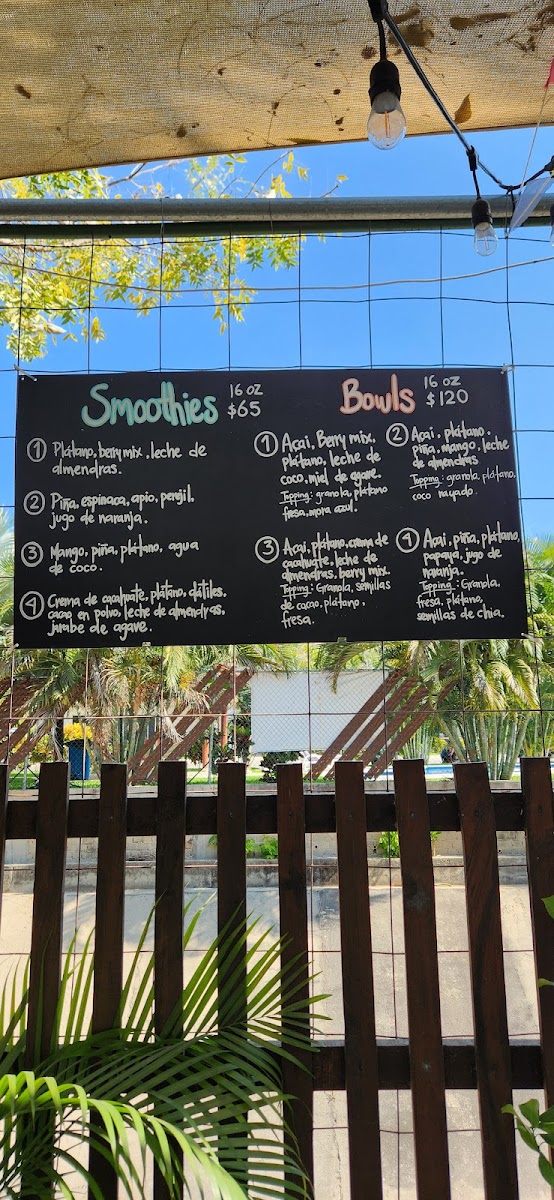 Smoothies 16 oz
$65
① Plátano, berry mix, leche de
almendras.
② Piña, espinaca, apio, perejil.
jugo de naranja.
③ Mango, piña, plátano, agua
de coco.
④ Crema de cacahuate, plátano, dátiles.
cacao en polvo, leche de almendras.
jarabe de agave.
Bowls 16 oz
$120
① Açai, Berry mix,
plátano, leche de
coco, miel de agave.
Topping: granola, plátano
fresa, mora azul.
② Açai, plátano.
piña, mango, leche
de almendras
Topping: granola, plátano,
coco rayado.
③ Açai, plátano, crema de
cacahuate, leche de
almendras, berry mix.
Topping: Granola, semillas
de cacao, plátano,
fresa.
④ Açai, piña, plátano,
papaya, jugo de
naranja.
Topping: Granola,
fresa, plátano,
semillas de chia.